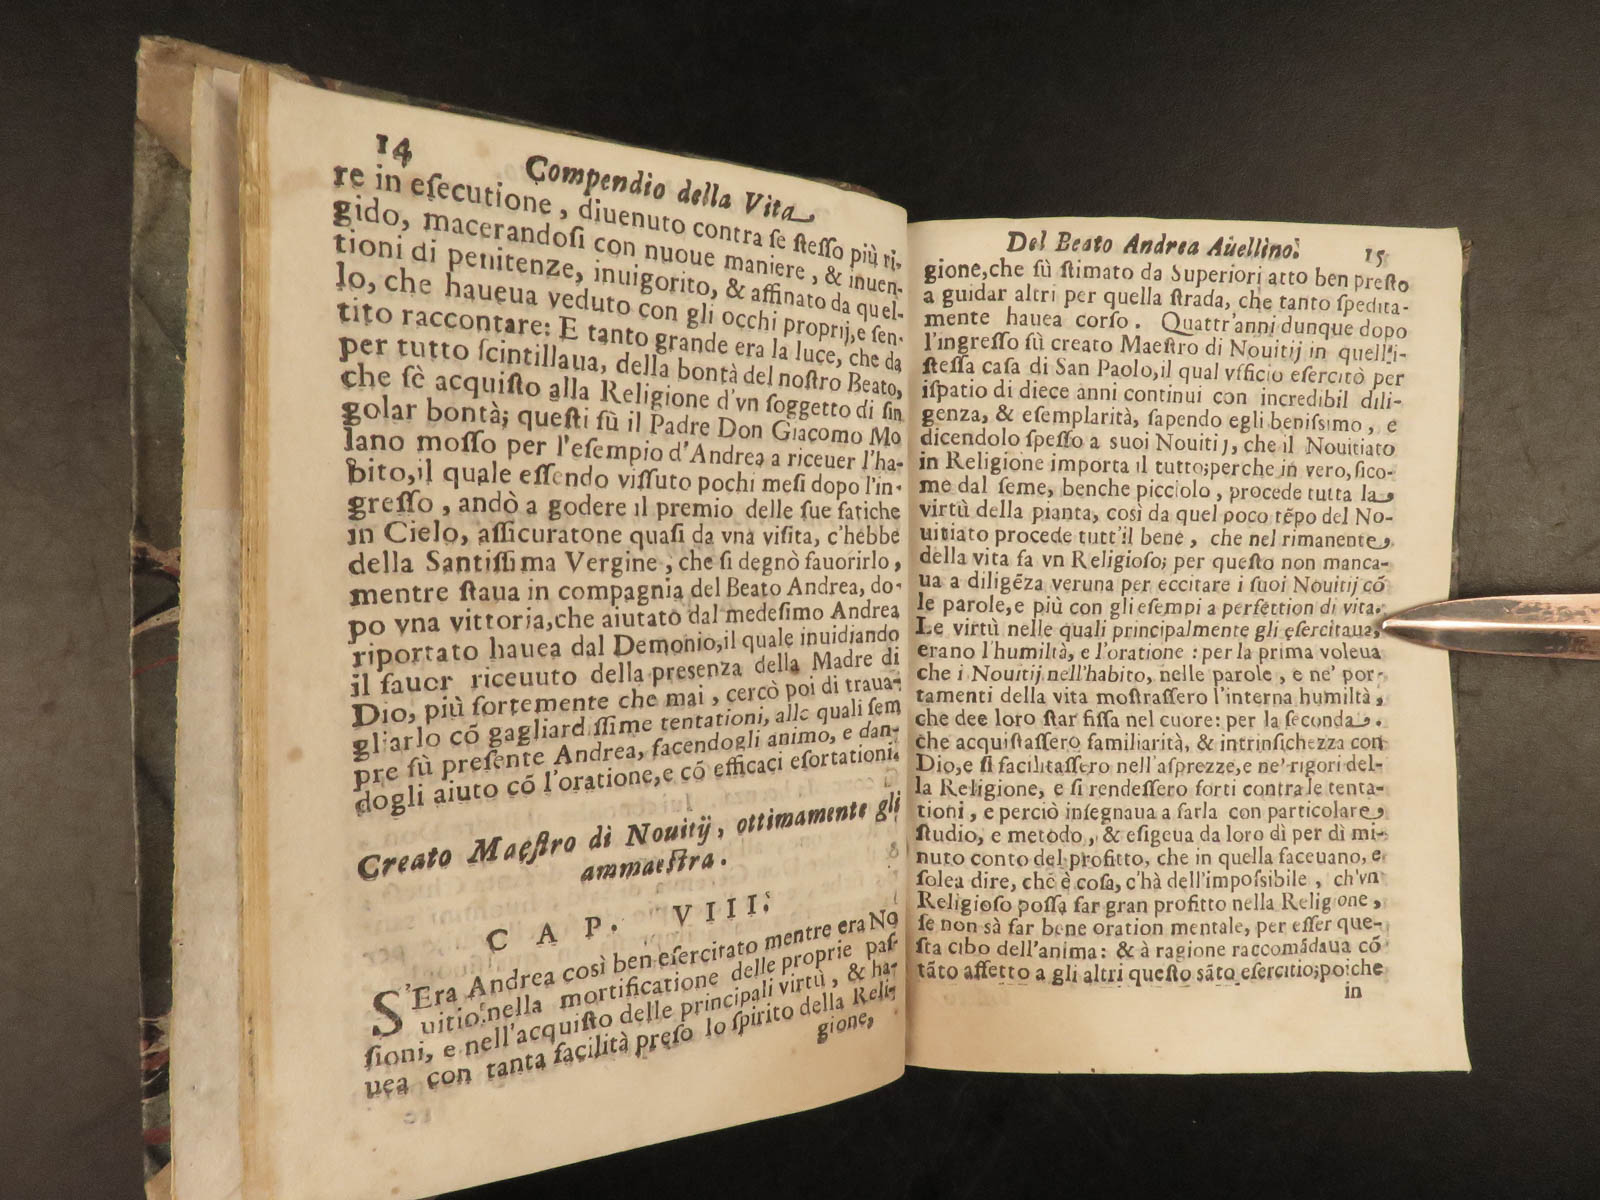 14
Compendio della Vita
re in eſecutione, diuenuto contra ſe ſteſſo più ri-
gido, macerandoſi con nuoue maniere, & inuen-
tioni di penitenze, inuigorito, & affinato da quel-
lo, che haueua veduto con gli occhi proprij, e ſen-
tito raccontare: E tanto grande era la luce, che da
per tutto ſcintillaua, della bontà del noſtro Beato,
che ſè acquiſto alla Religione d'vn ſoggetto di ſin
golar bontà; queſti fù il Padre Don Giacomo Mo
lano moſſo per l'eſempio d'Andrea a riceuer l'ha-
bito, il quale eſſendo viſſuto pochi meſi dopo l'in-
greſſo, andò a godere il premio delle ſue fatiche
in Cielo, aſſicuratone quaſi da vna viſita, c'hebbe
della Santiſſima Vergine, che ſi degnò fauorirlo,
mentre ſtaua in compagnia del Beato Andrea, do-
po vna vittoria, che aiutato dal medeſimo Andrea
riportato hauea dal Demonio, il quale inuidiando
il fauor riceuuto della preſenza della Madre di
Dio, più fortemente che mai, cercò poi di traua-
gliarlo cõ gagliardiſſime tentationi, alle quali ſem
pre fù preſente Andrea, facendogli animo, e dan-
dogli aiuto cõ l'oratione, e cõ efficaci eſortationi.
Creato Maeſtro di Nouitij, ottimamente gli
ammaeſtra.
CAP. VIII.
S'Era Andrea così ben eſercitato mentre era No
uitio nella mortificatione delle proprie paſ-
ſioni, e nell'acquiſto delle principali virtù, & ha-
uea con tanta facilità preſo lo ſpirito della Reli-
gione,
Del Beato Andrea Auellino.
15
gione, che fù ſtimato da Superiori atto ben preſto
a guidar altri per quella ſtrada, che tanto ſpedita-
mente hauea corſo. Quattr'anni dunque dopo
l'ingreſſo fù creato Maeſtro di Nouitij in quell'i-
ſteſſa caſa di San Paolo, il qual vfficio eſercitò per
iſpatio di diece anni continui con incredibil dili-
genza, & eſemplarità, ſapendo egli beniſſimo, e
dicendolo ſpeſſo a ſuoi Nouitij, che il Nouitiato
in Religione importa il tutto; perche in vero, ſico-
me dal ſeme, benche picciolo, procede tutta la
virtù della pianta, così da quel poco tẽpo del No-
uitiato procede tutt'il bene, che nel rimanente
della vita fa vn Religioſo; per queſto non manca-
ua a diligẽza veruna per eccitare i ſuoi Nouitij cõ
le parole, e più con gli eſempi a perfettion di vita.
Le virtù nelle quali principalmente gli eſercitaua,
erano l'humiltà, e l'oratione: per la prima voleua
che i Nouitij nell'habito, nelle parole, e ne' por-
tamenti della vita moſtraſſero l'interna humiltà,
che dee loro ſtar fiſſa nel cuore: per la ſeconda.
che acquiſtaſſero familiarità, & intrinſichezza con
Dio, e ſi facilitaſſero nell'aſprezze, e ne' rigori del-
la Religione, e ſi rendeſſero forti contra le tenta-
tioni, e perciò inſegnaua a farla con particolare
ſtudio, e metodo, & eſigeua da loro dì per dì mi-
nuto conto del profitto, che in quella faceuano, e
ſolea dire, che è coſa, c'hà dell'impoſsibile, ch'vn
Religioſo poſſa far gran profitto nella Religione,
ſe non sà far bene oration mentale, per eſſer que-
ſta cibo dell'anima: & à ragione raccomãdaua cõ
tãto affetto a gli altri queſto sãto eſercitio; poiche
in